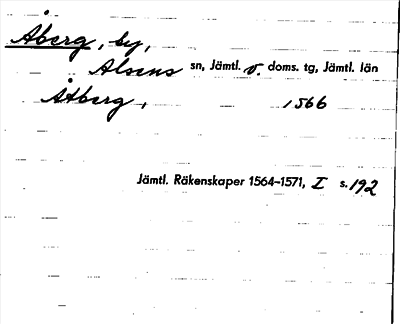 Åberg, by,
Alsens sn, Jämtl. v. doms. tg, Jämtl. län
Åtberg, 1566
Jämtl. Räkenskaper 1564-1571, I s. 192